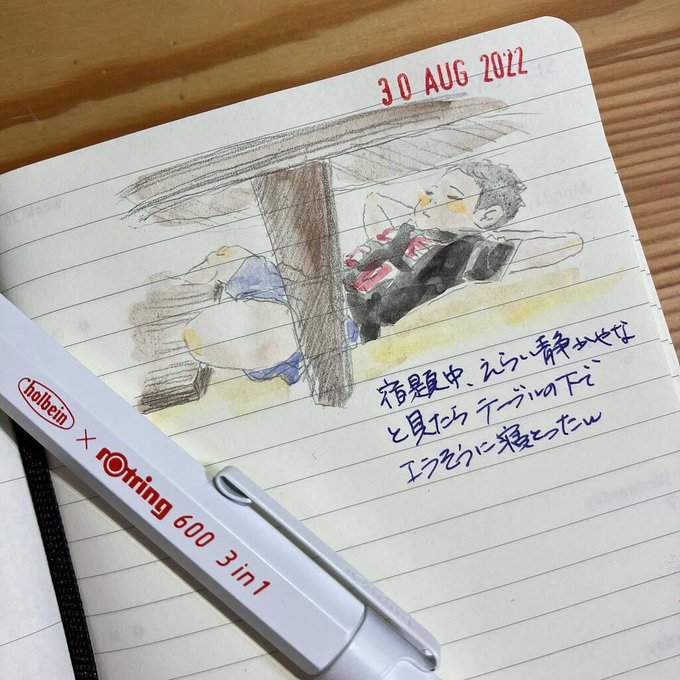 30 AUG 2022
宿題中、えらい静かやな
と見たら テーブルの下で
エラそうに寝とったw
holbein × rotring 600 3in1